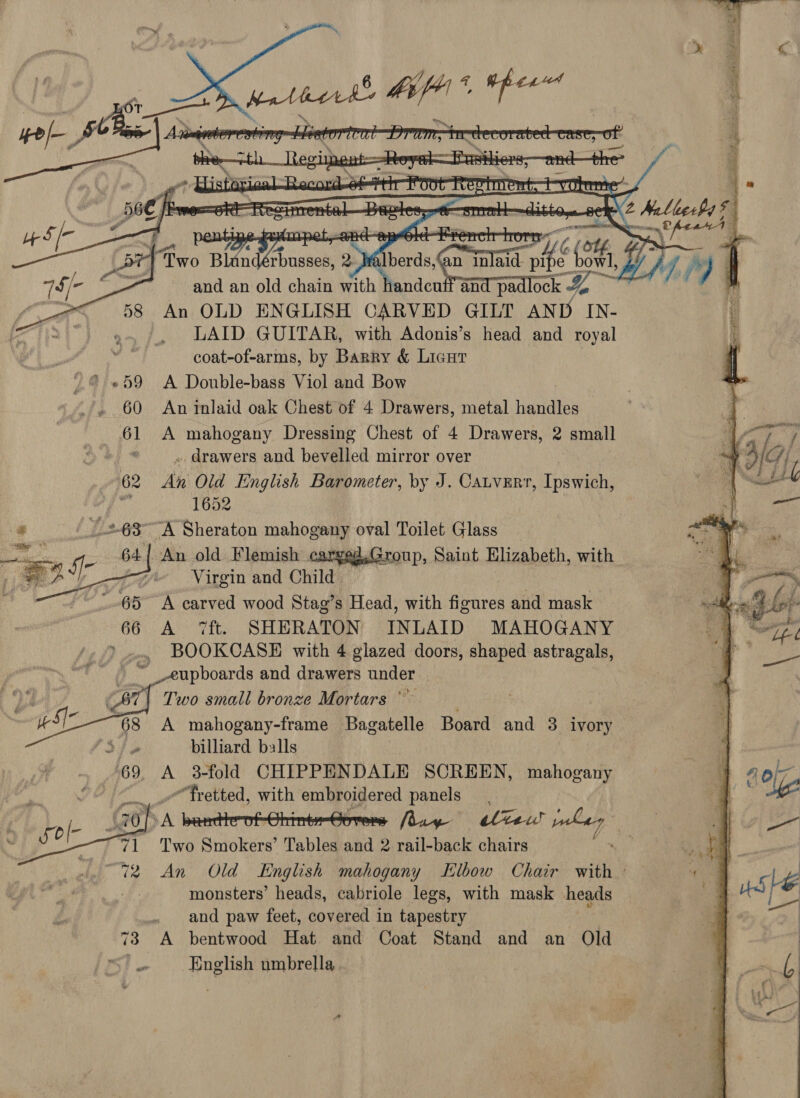 6
LOT
40/- 55 An interesting Historical Drum, in decorated case, of
the 7th Regiment Royal Fusiliers, and the
Historical Record of 7th Foot Regiment, 1 volume
56 Two old Regimental Bugles, a small ditto, 
45/- pentine trumpet, and an old French horn
57 Two Blunderbusses, 2 Halberds, an inlaid pipe bowl,
75/- and an old chain with handcuff and padlock
58 An OLD ENGLISH CARVED GILT AND IN-
LAID GUITAR, with Adonis's head and royal
coat-of-arms, by BARRY & LIGHT
59 A Double-bass Viol and Bow
60 An inlaid oak Chest of 4 Drawers, metal handles
61 A mahogany Dressing Chest of 4 Drawers, 2 small
drawers and bevelled mirror over
62 An Old English Barometer, by J. CALVERT, Ipswich,
1652
63 A Sheraton mahogany oval Toilet Glass
64 An old Flemish carved Group, Saint Elizabeth, with
Virgin and Child
65 A carved wood Stag's Head, with figures and mask
66 A 7ft. SHERATON INLAID MAHOGANY
BOOKCASE with 4 glazed doors, shaped astragals,
cupboards and drawers under
67 Two small bronze Mortars
45/- 68 A mahogany-frame Bagatelle Board and 3 ivory
billiard balls
69 A 3-fold CHIPPENDALE SCREEN, mahogany
fretted, with embroidered panels
70 A bundle of Chintz Covers
50/- 71 Two Smokers' Tables and 2 rail-back chairs
72 An Old English mahogany Elbow Chair with
monsters' heads, cabriole legs, with mask heads
and paw feet, covered in tapestry
73 A bentwood Hat and Coat Stand and an Old
English umbrella